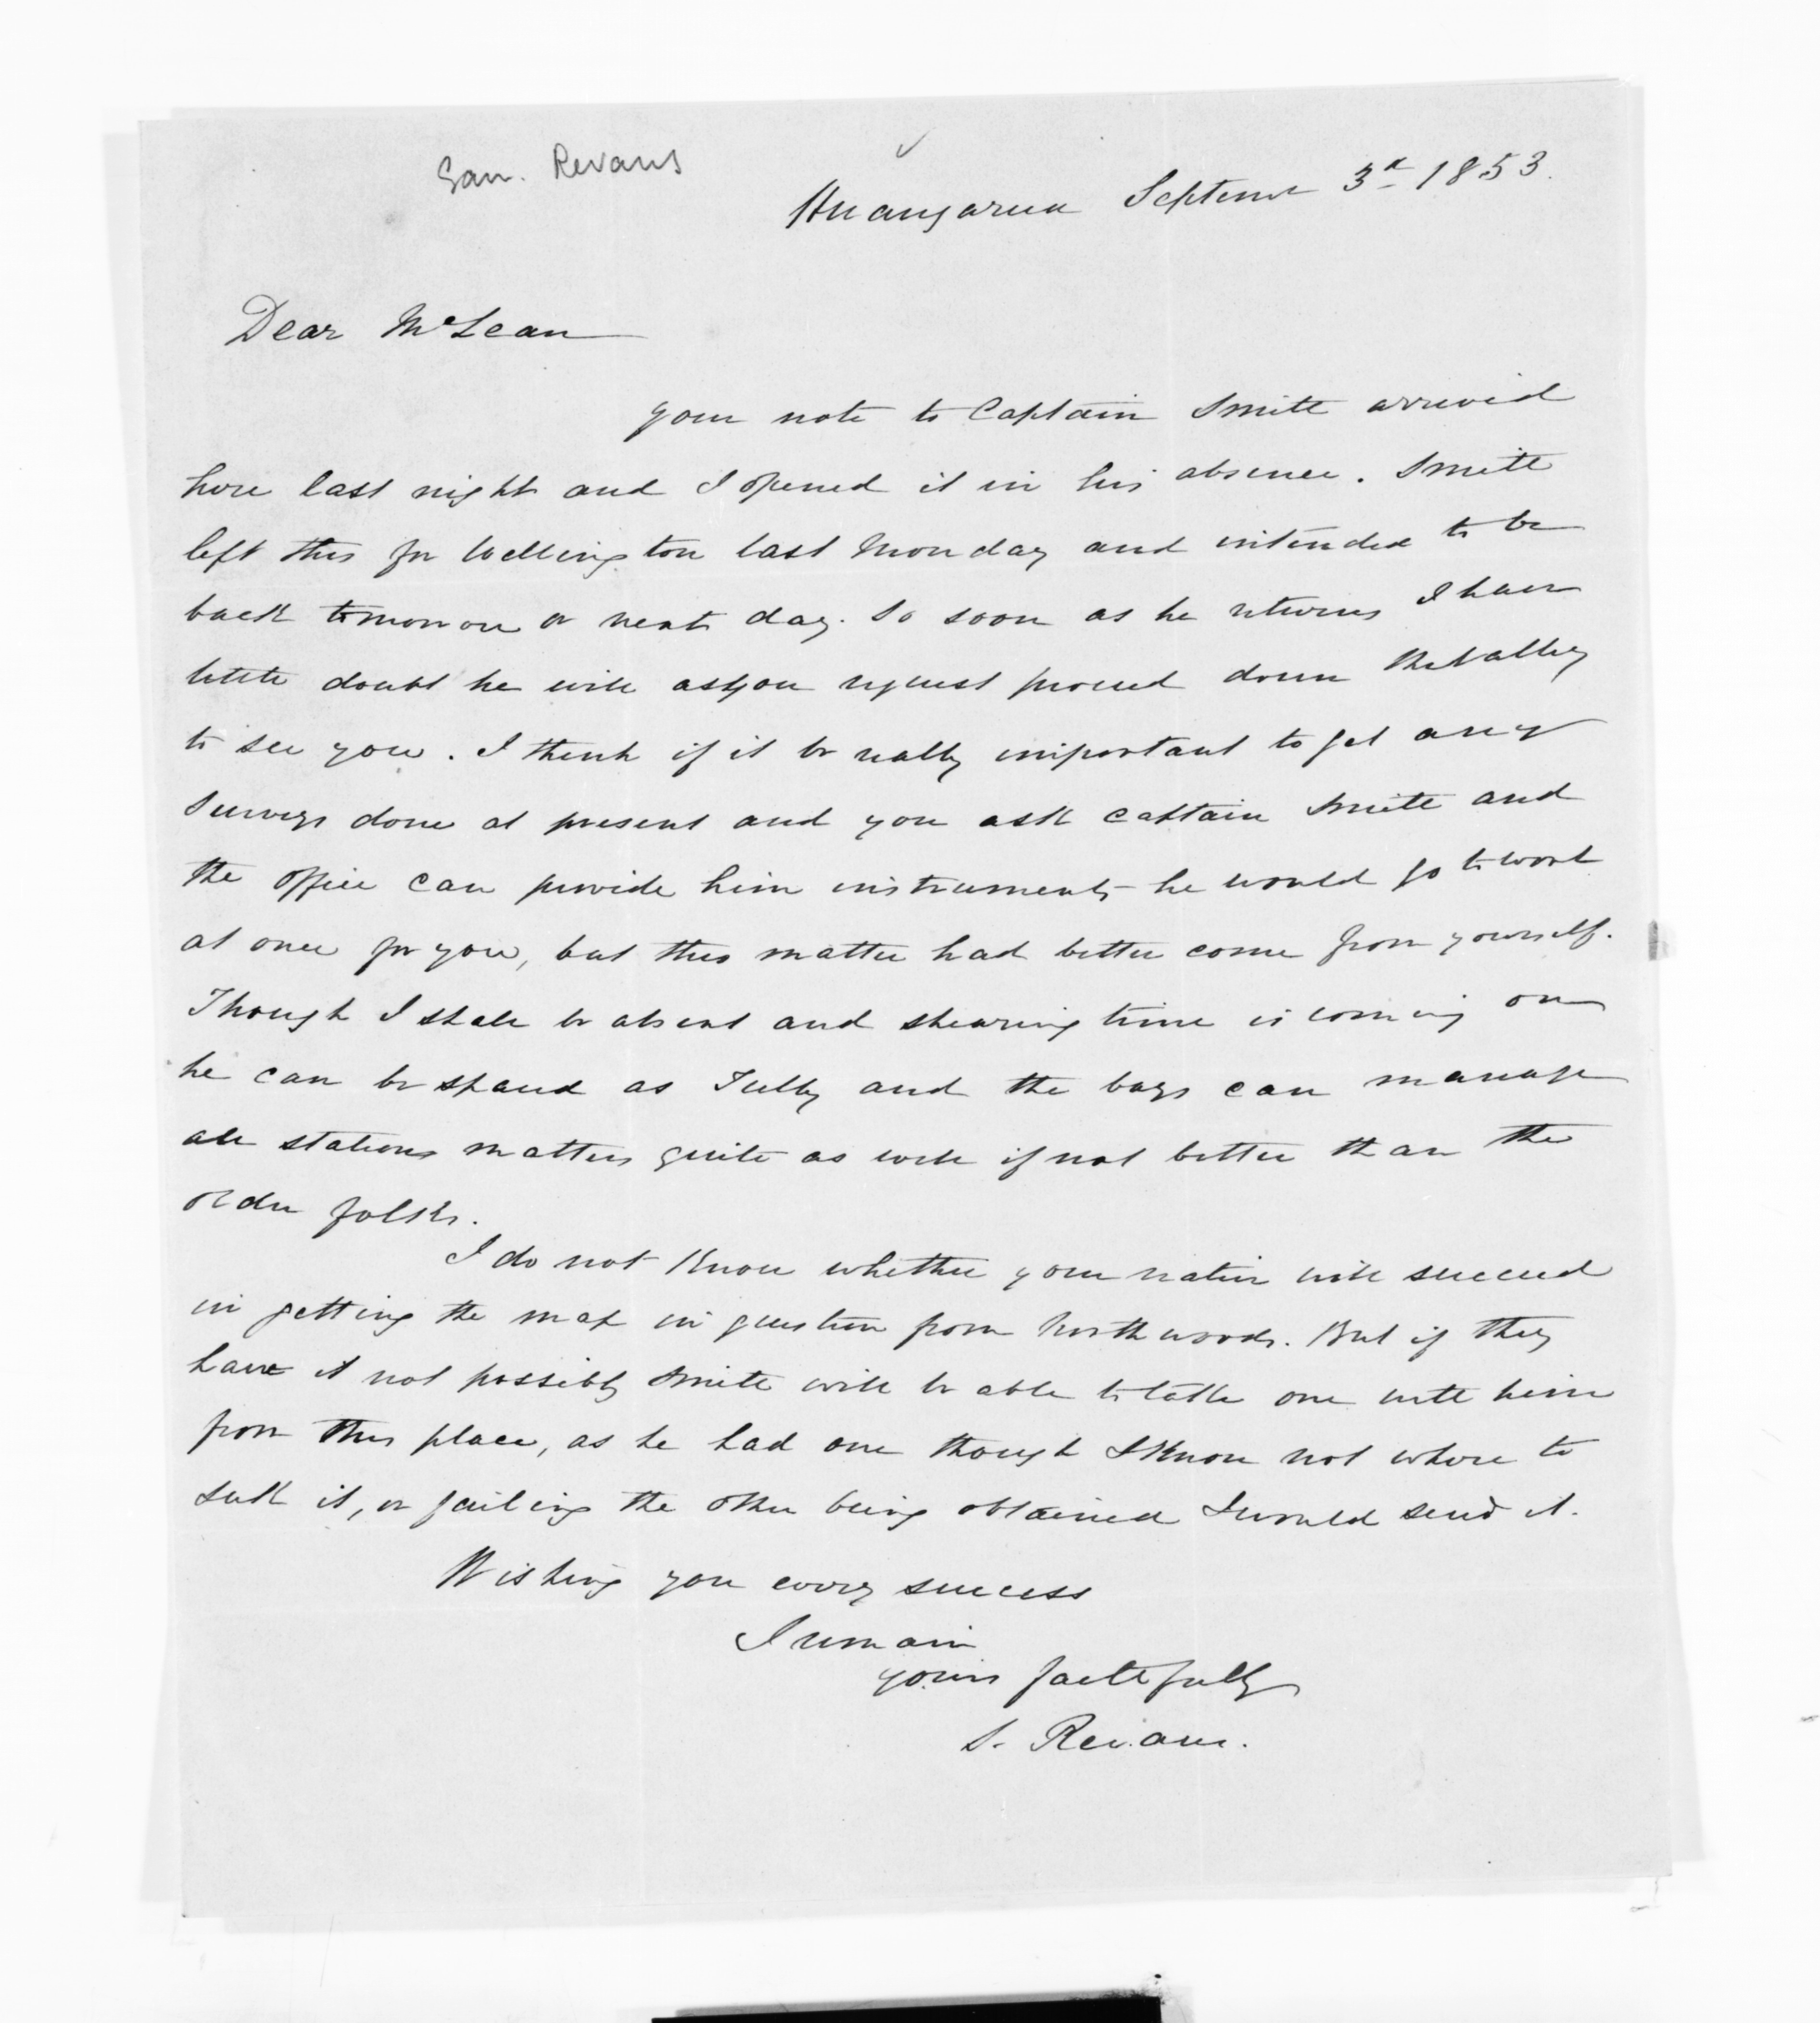 Sam. Revans
Huangarua Septemr 3rd 1853.
Dear McLean
Your note to Captain Smith arrived
here last night and I opened it in his absence. Smith
left this for Wellington last Monday and intended to be
back tomorrow or next day. So soon as he returns I have
little doubt he will as you request proceed down the Valley
to see you. I think if it be really important to get any
surveys done at present and you ask Captain Smith and
the office can provide him instruments he would go to work
at once for you, but this matter had better come from yourself.
Though I shall be absent and shearing time is coming on
he can be spared as Tully and the boys can manage
all stations matters quite as well if not better than the
older folks.
I do not know whether your native will succeed
in getting the map in question from Northwoods. But if they
have it not possibly Smith will be able to take one with him
from this place, as he had one though I know not where to
seek it, or failing the other being obtained I would send it.
Wishing you every success
I remain
yours faithfully
S. Revans.